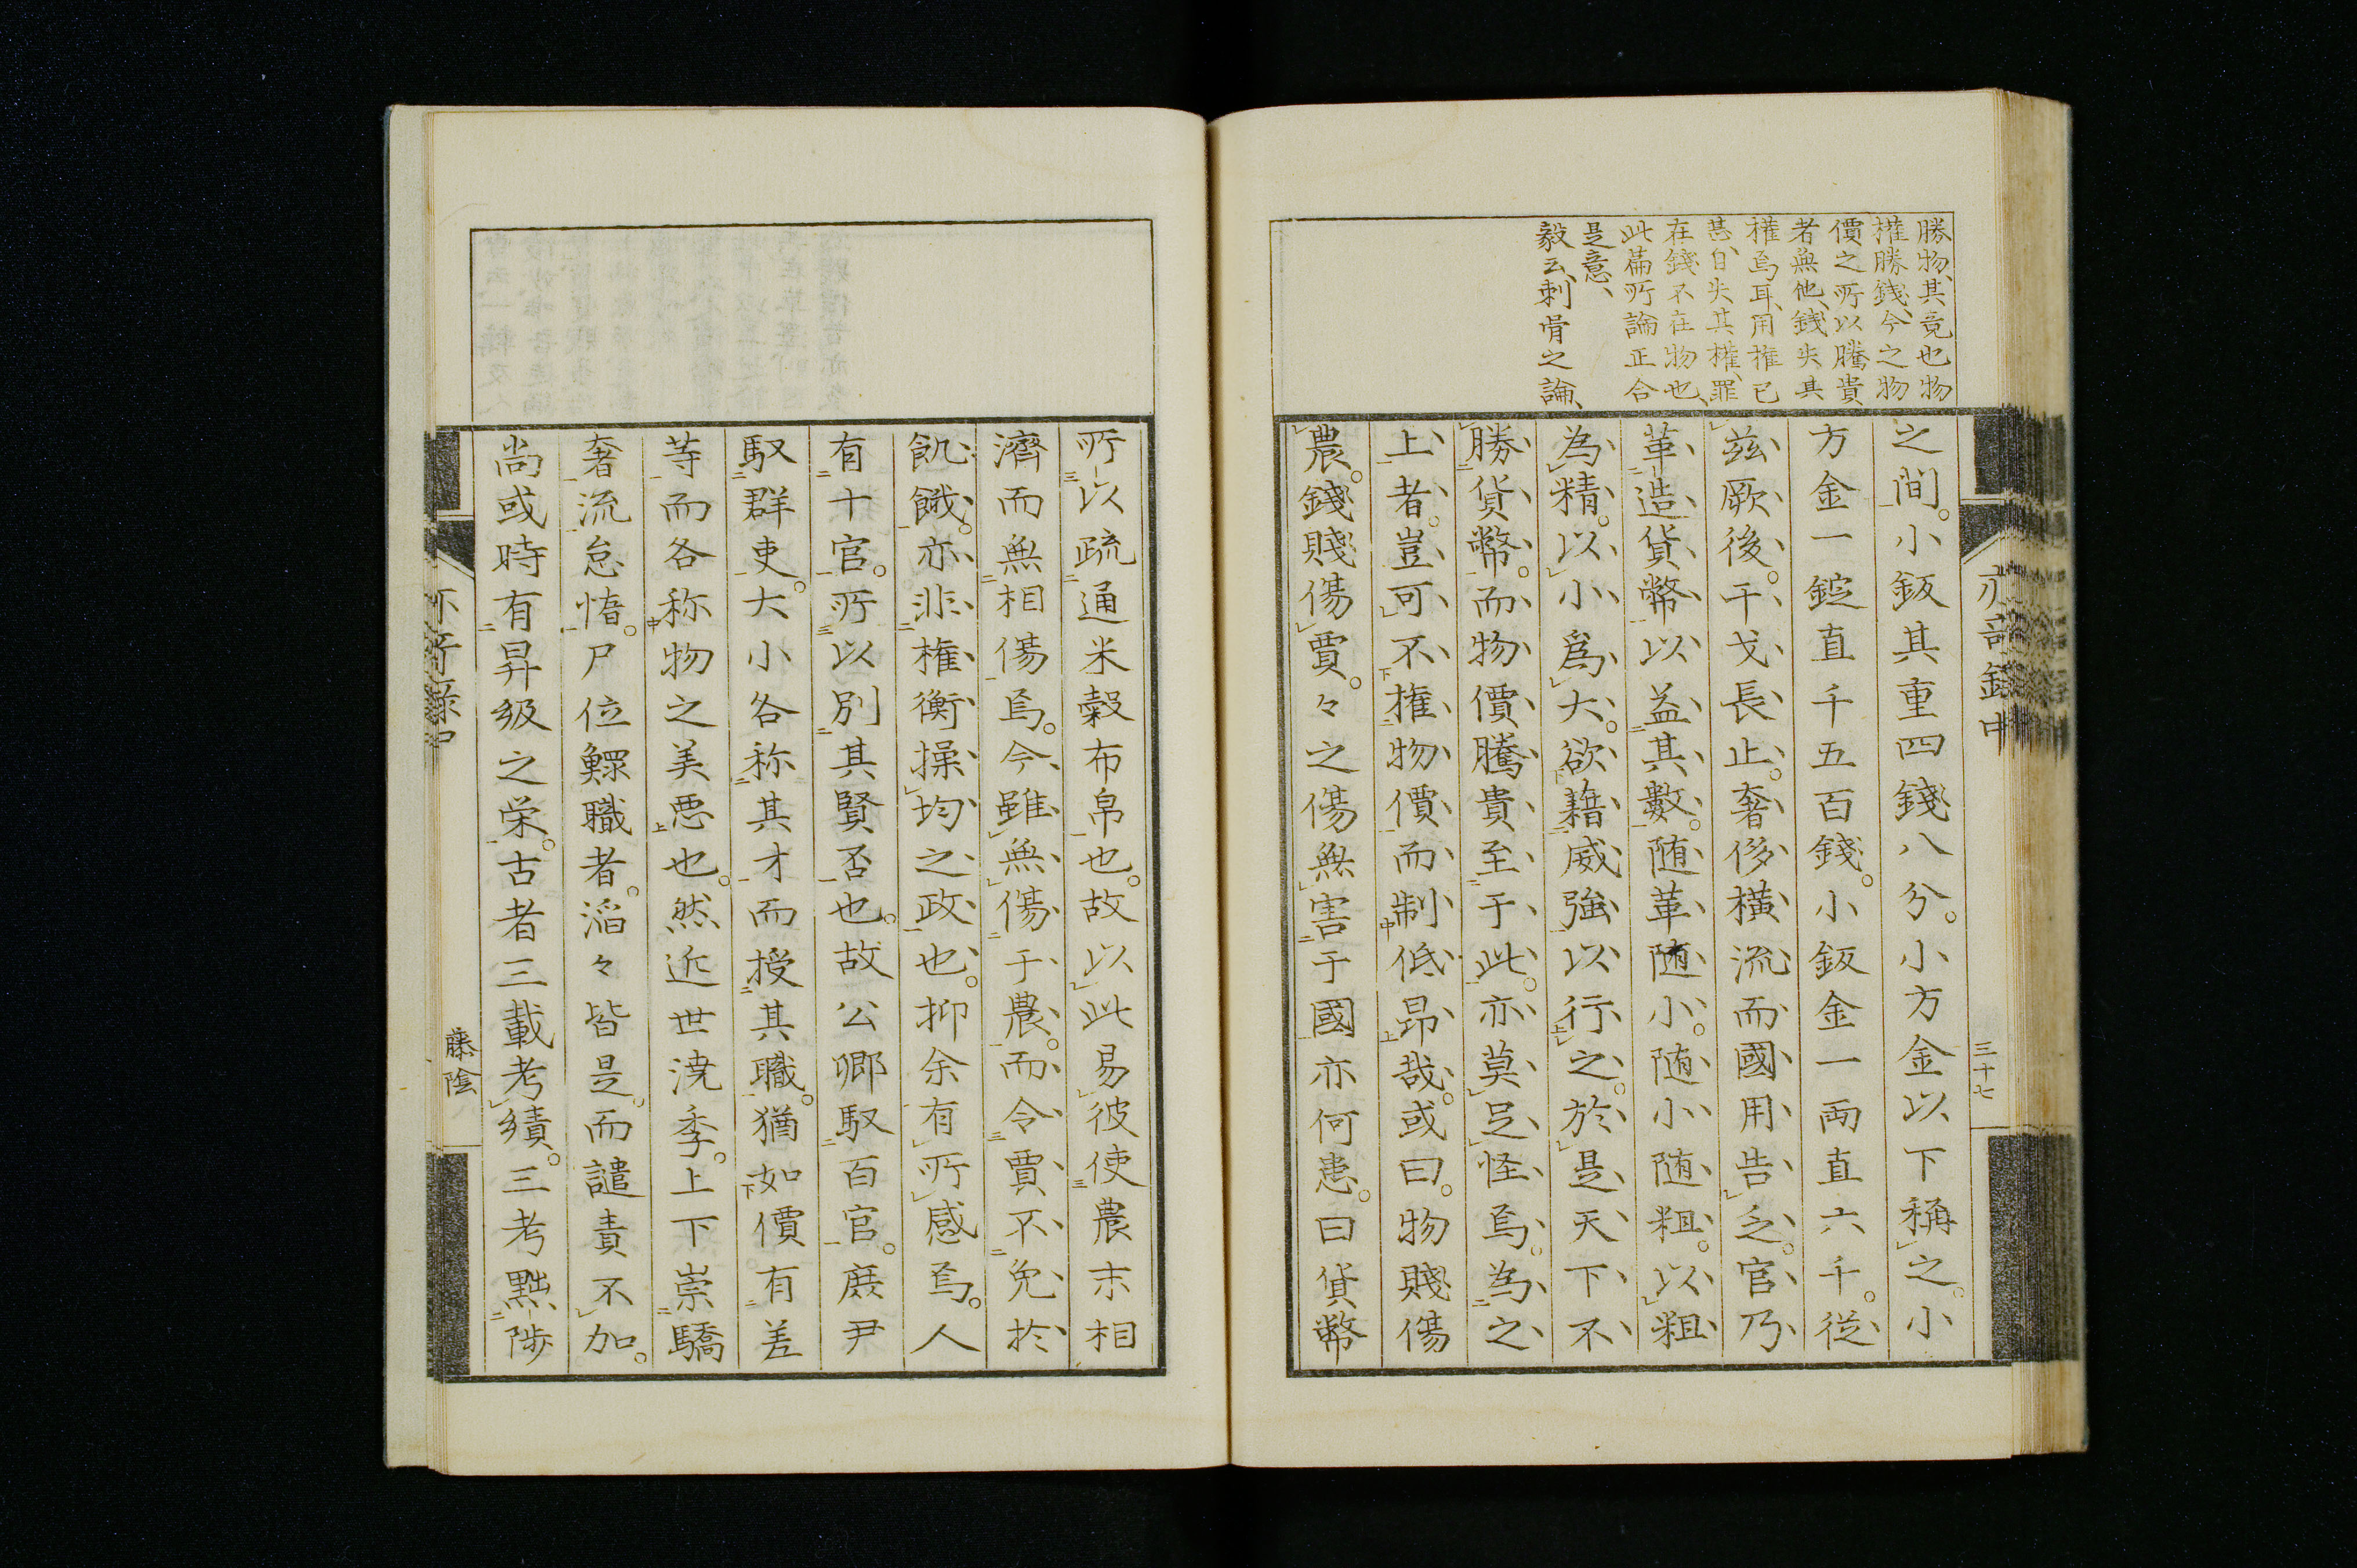 勝物、其竟也物
権勝錢、今之物
價之所以騰貴
者無他、錢失其
権焉耳、用権已
甚、自失其権、罪
在錢不在物也、
此篇所論正合
是意、
毅云、刺骨之論、
之間。小鈑其重四錢八分。小方金以下稱之。小
方金一錠直千五百錢。小鈑金一両直六千。従
玆厥後。干戈長止。奢侈横流而國用告乏。官乃
革造貨幣以益其數。随革随小。随小随粗。以粗
為精。以小爲大。欲藉威強以行之。於是天下不
勝貨幣。而物價騰貴至于此。亦莫足怪焉。為之
上者。豈可不権物價而制低昂哉。或曰。物賤傷
農。錢賤傷賈。々之傷無害于國亦何患。曰貨幣
三十七
所以疏通米穀布帛也。故以此易彼使農末相
濟而無相傷焉。今雖無傷于農。而令賈不免於
飢餓。亦非権衡操均之政也。抑余有所感焉。人
有十官。所以別其賢否也。故公卿馭百官。庶尹
馭群吏。大小各称其才而授其職。猶如價有差
等而各称物之美悪也。然近世澆季。上下崇驕
奢流怠惰。尸位鰥職者。滔々皆是。而譴責不加。
尚或時有昇級之栄。古者三載考績。三考黜陟
藤陰